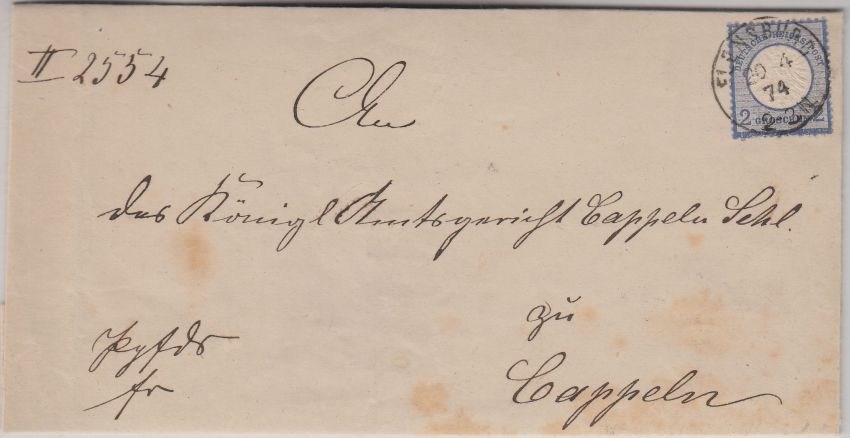 II 2554
FLENSBURG
20 4
74
2-3N
DEUTSCHE REICHS-POST
2 GROSCHEN 2
An
das Königl Amtsgericht Cappeln Schl.
zu
Cappeln
fr